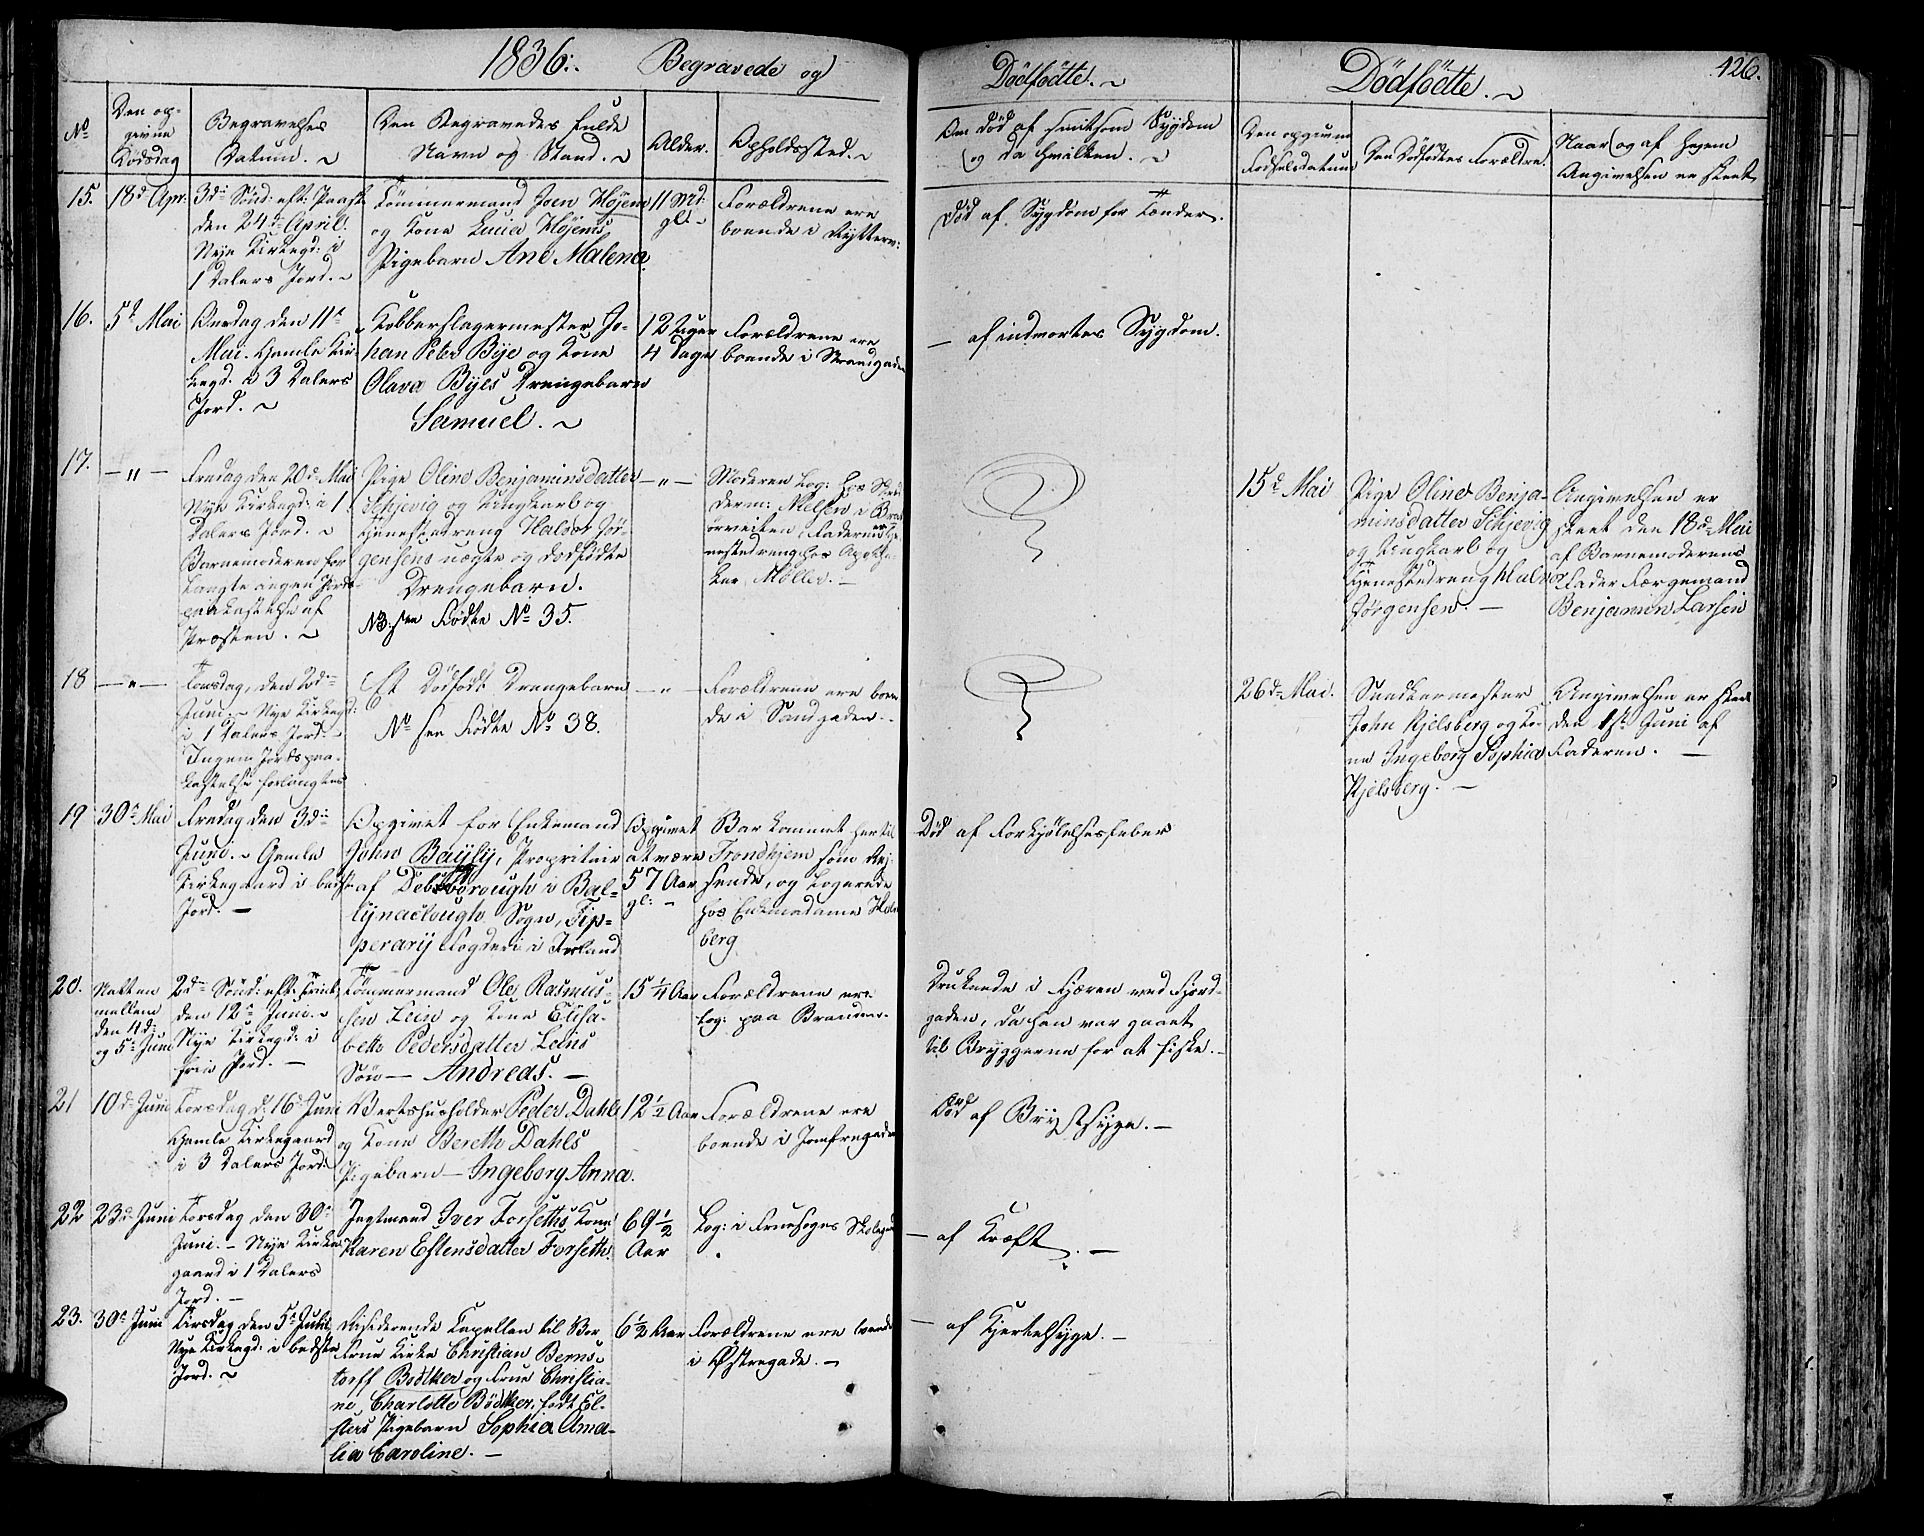 1836. Begravede og Dödfödte. Dödfödte. 426.
No
Den op-
givne
Dödsdag
Begravelses
Datum.
Den Begravedes fulde
Navn og Stand.
Alder.
Opholdssted.
Om död af smitsom Sygdom
og da hvilken.
Den opgivne
Födselsdatum
Den Dödfödtes Forældre.
Naar og af hvem
Angivelsen er skeet
15.
18d Apr:
3die Sönd: eft: Paaske
den 24de April.
Nye Kirkegd: i
1 Dalers Jord.
Tömmermand Joen Höjem
og Kone Lucia Höjems
Pigebarn Ane Malena.
11 Md:
gl.
Forældrene ere
boende i
Död af Sygdom for Tænder.
16.
5te Mai
Onsdag den 11te
Mai. Gamle Kir-
kegd. i 3 Dalers
Jord.
Kobberslagermester Jo-
han Peter Bye og Kone
Olava Byes Drengebarn
Samuel.
12 Uger
4 Dage
Forældrene ere
boende i Strandgaden
— af indvortes Sygdom.
17.
— " —
Fredag den 20de Mai
Nye Kirkegd: i 1
Dalers Jord.
Barnemoderen for-
langte ingen Jords-
paakastelse af
Præsten.
Pige Oline Benjaminsdatter
Schjevig og Ungkarl og
Tjenestedreng Halvor Jör-
gensens uægte og dödfödte
Drengebarn.
NB: see Födte No 35.
— " —
Moderen Log: hos
Nielsen i
Faderen
nestedreng hos Apothe-
ker Møller. —
15de Mai
Pige Oline Benja-
minsdatter Schjevig
og Ungkarl og
Tjenestedreng Halvor
Jörgensen. —
Angivelsen er
skeet den 18de Mai
af Barnemoderens
Fader Færgemand
Benjamin Larsen
18
— " —
Torsdag, den 2den
Juni. - Nye Kirkegd:
i 1 Dalers Jord.
Ingen Jordspaa-
kastelse forlangtes
Et dödfödt Drengebarn
No see Födte No 38.
— " —
Forældrene ere boen-
de i Sandgaden.
26de Mai.
John Kjelsberg og Ko-
ne Ingeborg Sophia
Kjelsberg. —
Angivelsen er skeet
den 1ste Juni af
Faderen. —
19
30te Mai
Fredag den 3die
Juni. - Gamle
Kirkegaard i bedste
Jord. —
Opgivet for Enkemand
John Bayly, Propritair
af Debsborough i Bal-
lynaclough Sogn, Tip-
perary Fogderi i Irland
Opgivet
at være
57 Aar
gl:
Var kommet hertil
Trondhjem som Rej-
sende, og logerede
hos Enkemadame Holm-
berg
Död af Forkjölelsesfeber
20.
Natten
mellem
den 4de
og 5te Juni
2den Sönd: eft. Trinit:
den 12te Juni.
Nye Kirkegd: i
frie Jord. —
Tömmermand Ole Rasmus-
sen Lein og Kone Elisa-
beth Pedersdatter Leins
Sön — Andreas. —
15 1/4 Aar
Forældrene ere
Log: paa Brandn.
Druknede i Fjæren ved Fjord-
gaden, da han var gaaet
til Bryggerne for at fiske. —
21
10de Juni
Torsdag d: 16de Juni
Gamle Kirkegaard
i 3 Dalers Jord:
Vertshusholder Peder Dahl
og Kone Bereth Dahls
Pigebarn — Ingeborg Anna.
12 1/2 Aar
Forældrene ere
boende i Jomfrugaden
Död af Brystsyge. —
22
23de Juni
Torsdag den 30te
Juni. - Nye Kirke-
gaard i 1 Dalers
Jord. —
Jegtmand Iver Forseths Kone
Karen Estensdatter Forseth.
69 1/2
Aar
Log: i Fruesogns
— af Kræft. —
23.
30te Juni
Tirsdag den 5te Juli
Nye Kirkegd: i bedste
Jord.
Residerende Capellan til Vor
Frue Kirke Christian Berns-
torff Bödtker og Frue Christia-
ne, Charlotte Bödtker, född El-
sters Pigebarn Sophia Ama-
lia Caroline. —
6 1/2 Aar
Forældrene ere boende
i Østregade. —
— af Kjertelsyge. —